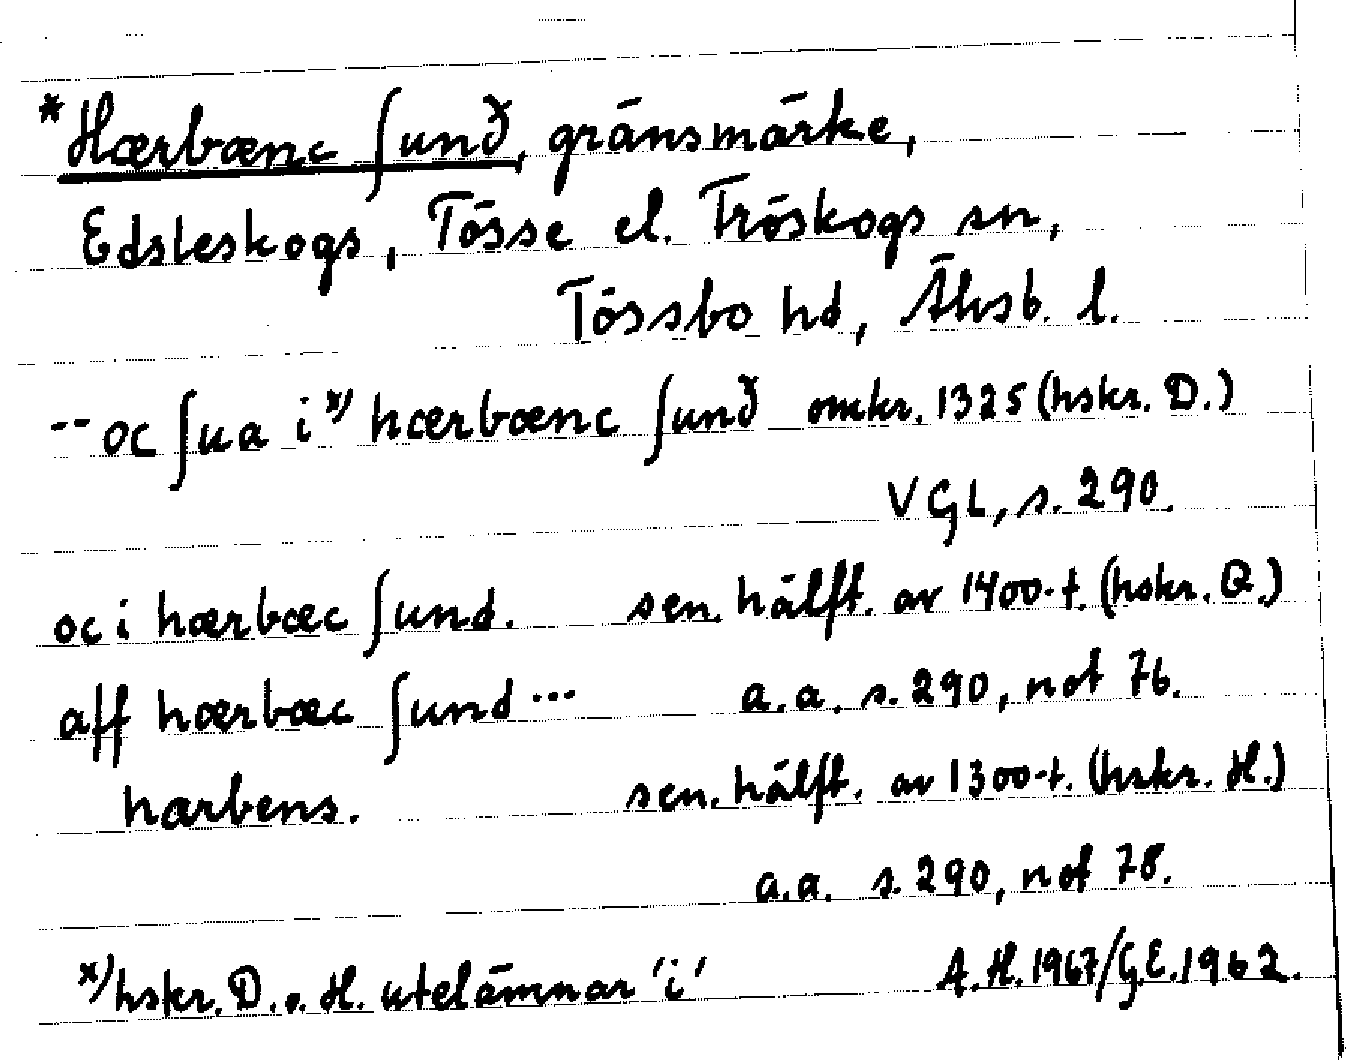 *Hærbænc ſunð, gränsmärke,
Edsleskogs, Tösse el. Fröskogs sn,
Tössbo hd, Älvsb. l.
-- oc ſua i x) hærbænc ſunð omkr. 1325 (hskr. D.)
VGL, s. 290.
oc i hærbæc ſund. sen. hälft. av 1400-t. (hskr. B.)
aff hærbæc ſund ... a.a. s. 290, not 76.
harbens. sen. hälft. av 1300-t. (hskr. H.)
a.a. s. 290, not 78.
x) hskr. D. o. H. utelämnar 'i' A.H. 1967/G.E. 1962.